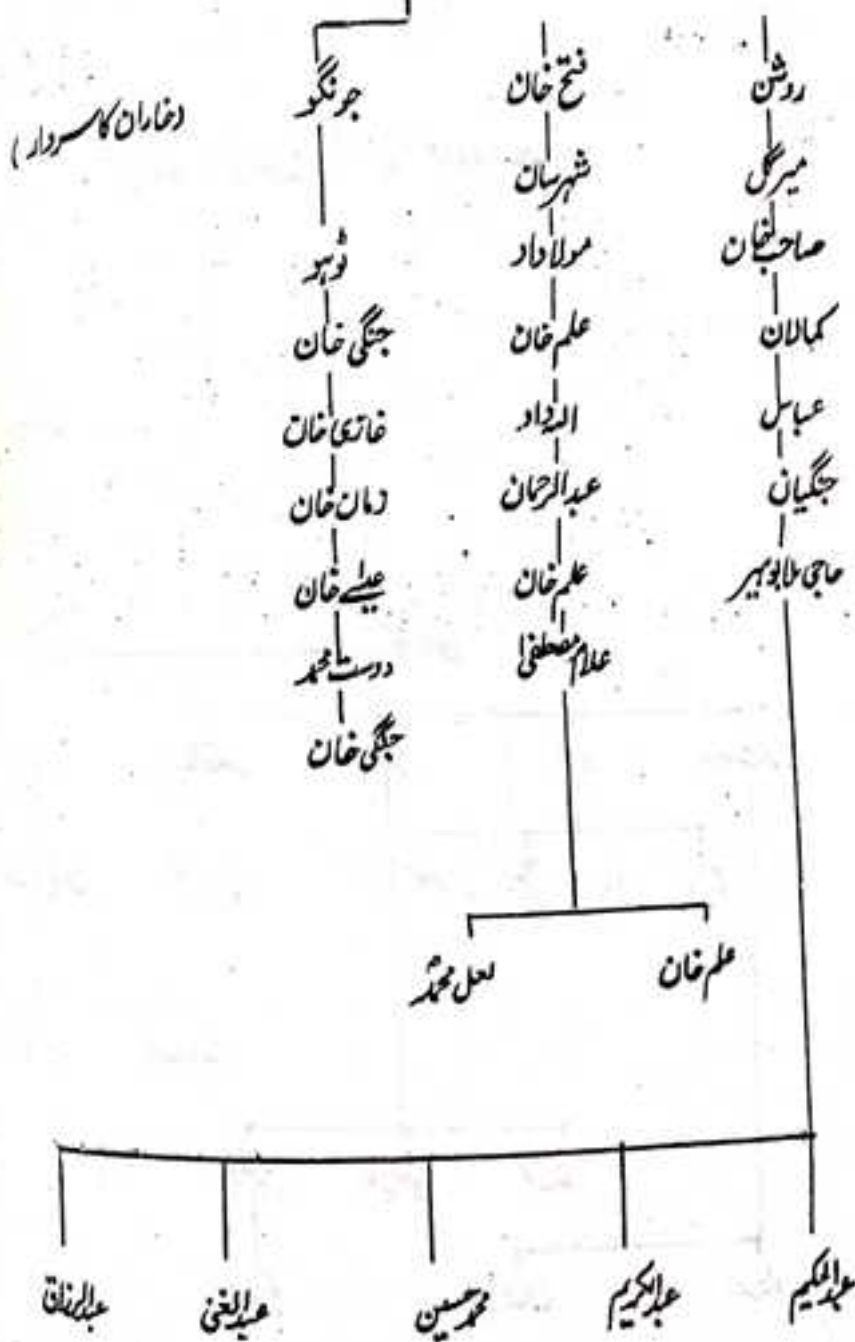 روشن
میر گل
صاحب خان
کمالان
عباس
جنگیان
حاجی ملا بوہیر
فتح خان
شہرسان
مولا داد
علم خان
اللہ داد
عبدالرحمان
علم خان
غلام مصطفیٰ
علم خان
لعل محمدؐ
جونگو
(خاران کا سردار)
ٹوہو
جنگی خان
غازی خان
زمان خان
عیسےٰ خان
دوست محمد
جنگی خان
عبدالحکیم
عبدالکریم
محمد حسین
عبدالغنی
عبدالرزاق